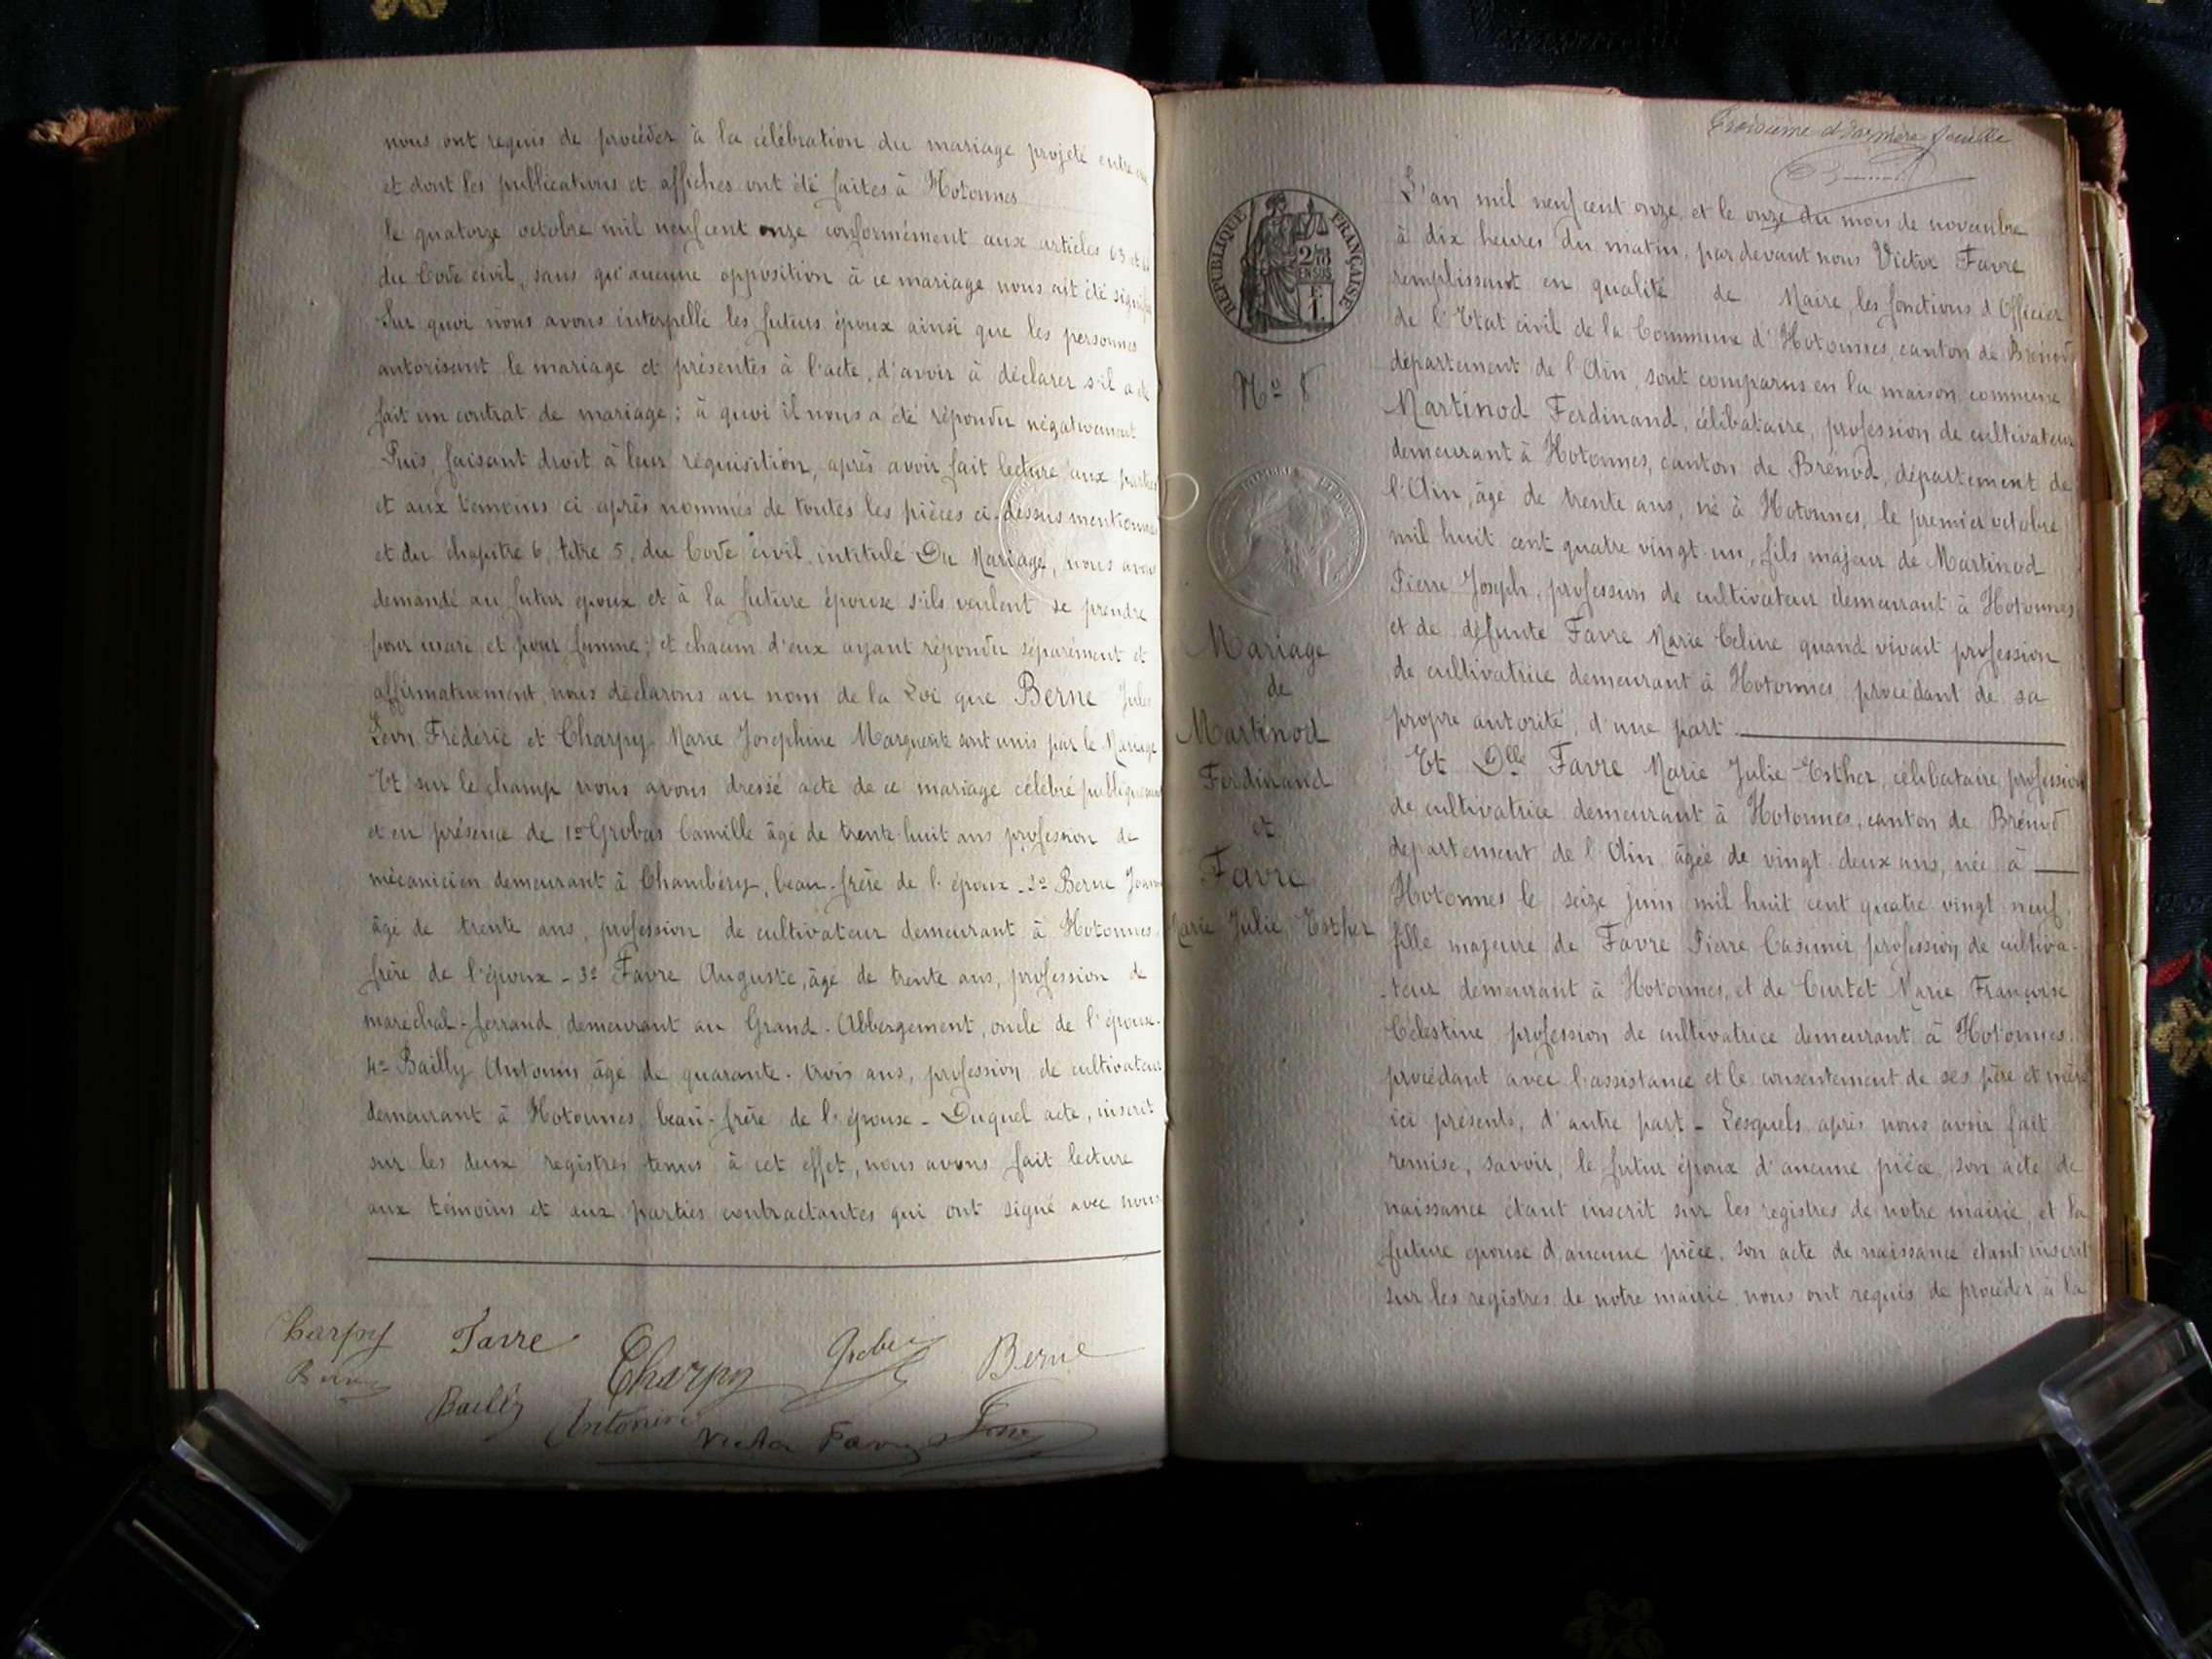 nous ont requis de procéder à la célébration du mariage projeté entre eux
et dont les publications et affiches ont été faites à Hotonnes
le quatorze octobre mil neuf cent onze conformément aux articles 63 et
du Code civil, sans qu'aucune opposition à ce mariage nous ait été signifiée
Sur quoi nous avons interpellé les futurs époux ainsi que les personnes
autorisant le mariage et présentes à l'acte, d'avoir à déclarer s'il a été
fait un contrat de mariage ; à quoi il nous a été répondu négativement
Puis, faisant droit à leur réquisition, après avoir fait lecture aux parties
et aux témoins ci après nommés de toutes les pièces ci-dessus mentionnées
et du chapitre 6, titre 5, du Code civil intitulé Du Mariage, nous avons
demandé au futur époux et à la future épouse s'ils veulent se prendre
pour mari et pour femme ; et chacun d'eux ayant répondu séparément et
affirmativement, nous déclarons au nom de la Loi que Berne Jules
Léon Frédéric et Charpy Marie Joséphine Marguerite sont unis par le Mariage
Et sur le champ nous avons dressé acte de ce mariage célébré publiquement
et en présence de 1º Grobas Camille âgé de trente-huit ans profession de
mécanicien demeurant à Chambéry, beau-frère de l'époux - 2º Berne
âgé de trente ans, profession de cultivateur demeurant à Hotonnes
frère de l'époux - 3º Favre Auguste, âgé de trente ans, profession de
maréchal-ferrand demeurant au Grand-Abbergement, oncle de l'épouse-
4º Bailly Antonin âgé de quarante-trois ans, profession de cultivateur
demeurant à Hotonnes, beau-frère de l'épouse - Duquel acte, inscrit
sur les deux registres tenus à cet effet, nous avons fait lecture
aux témoins et aux parties contractantes qui ont signé avec nous
Charpy Favre Charpy Berne
Bailly Antonin
Victor Favre
Troisième et dernière feuille
RÉPUBLIQUE FRANÇAISE
Nº 8
Mariage
de
Martinod
Ferdinand
et
Favre
Marie Julie Esther
L'an mil neuf cent onze, et le onze du mois de novembre
à dix heures du matin, par devant nous Victor Favre
remplissant en qualité de Maire les fonctions d'Officier
de l'Etat civil de la Commune d'Hotonnes, canton de Brénod
département de l'Ain, sont comparus en la maison commune
Martinod Ferdinand, célibataire, profession de cultivateur
demeurant à Hotonnes, canton de Brénod, département de
l'Ain, âgé de trente ans, né à Hotonnes, le premier octobre
mil huit cent quatre vingt-un, fils majeur de Martinod
Pierre Joseph, profession de cultivateur demeurant à Hotonnes
et de défunte Favre Marie Celine quand vivait profession
de cultivatrice demeurant à Hotonnes procédant de sa
propre autorité, d'une part
Et Dlle Favre Marie Julie Esther, célibataire, profession
de cultivatrice demeurant à Hotonnes, canton de Brénod
département de l'Ain âgée de vingt-deux ans, née à
Hotonnes le seize juin mil huit cent quatre-vingt neuf,
fille majeure de Favre Pierre Casimir profession de cultiva-
-teur demeurant à Hotonnes, et de Curtet Marie Françoise
Célestine profession de cultivatrice demeurant à Hotonnes
procédant avec l'assistance et le consentement de ses père et mère
ici présents, d'autre part - Lesquels après nous avoir fait
remise, savoir, le futur époux d'aucune pièce, son acte de
naissance étant inscrit sur les registres de notre mairie, et la
future épouse d'aucune pièce, son acte de naissance étant inscrit
sur les registres de notre mairie, nous ont requis de procéder à la